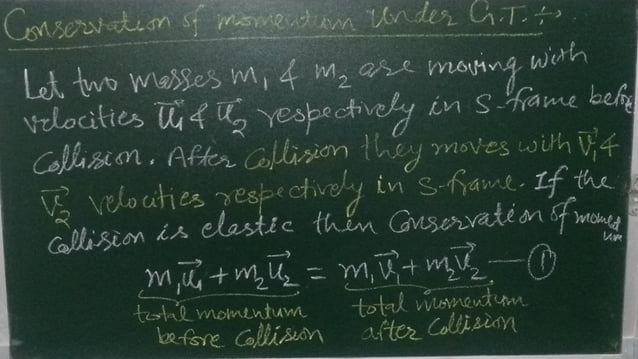 Conservation of momentum Under G.T. ÷
Let two masses m₁ & m₂ are moving with
velocities u⃗₁ & u⃗₂ respectively in S-frame before
Collision. After Collision they moves with v⃗₁ &
v⃗₂ velocities respectively in S-frame. If the
collision is elastic then Conservation of momentum
m₁u⃗₁ + m₂u⃗₂ = m₁v⃗₁ + m₂v⃗₂ — ①
total momentum before Collision
total momentum after Collision